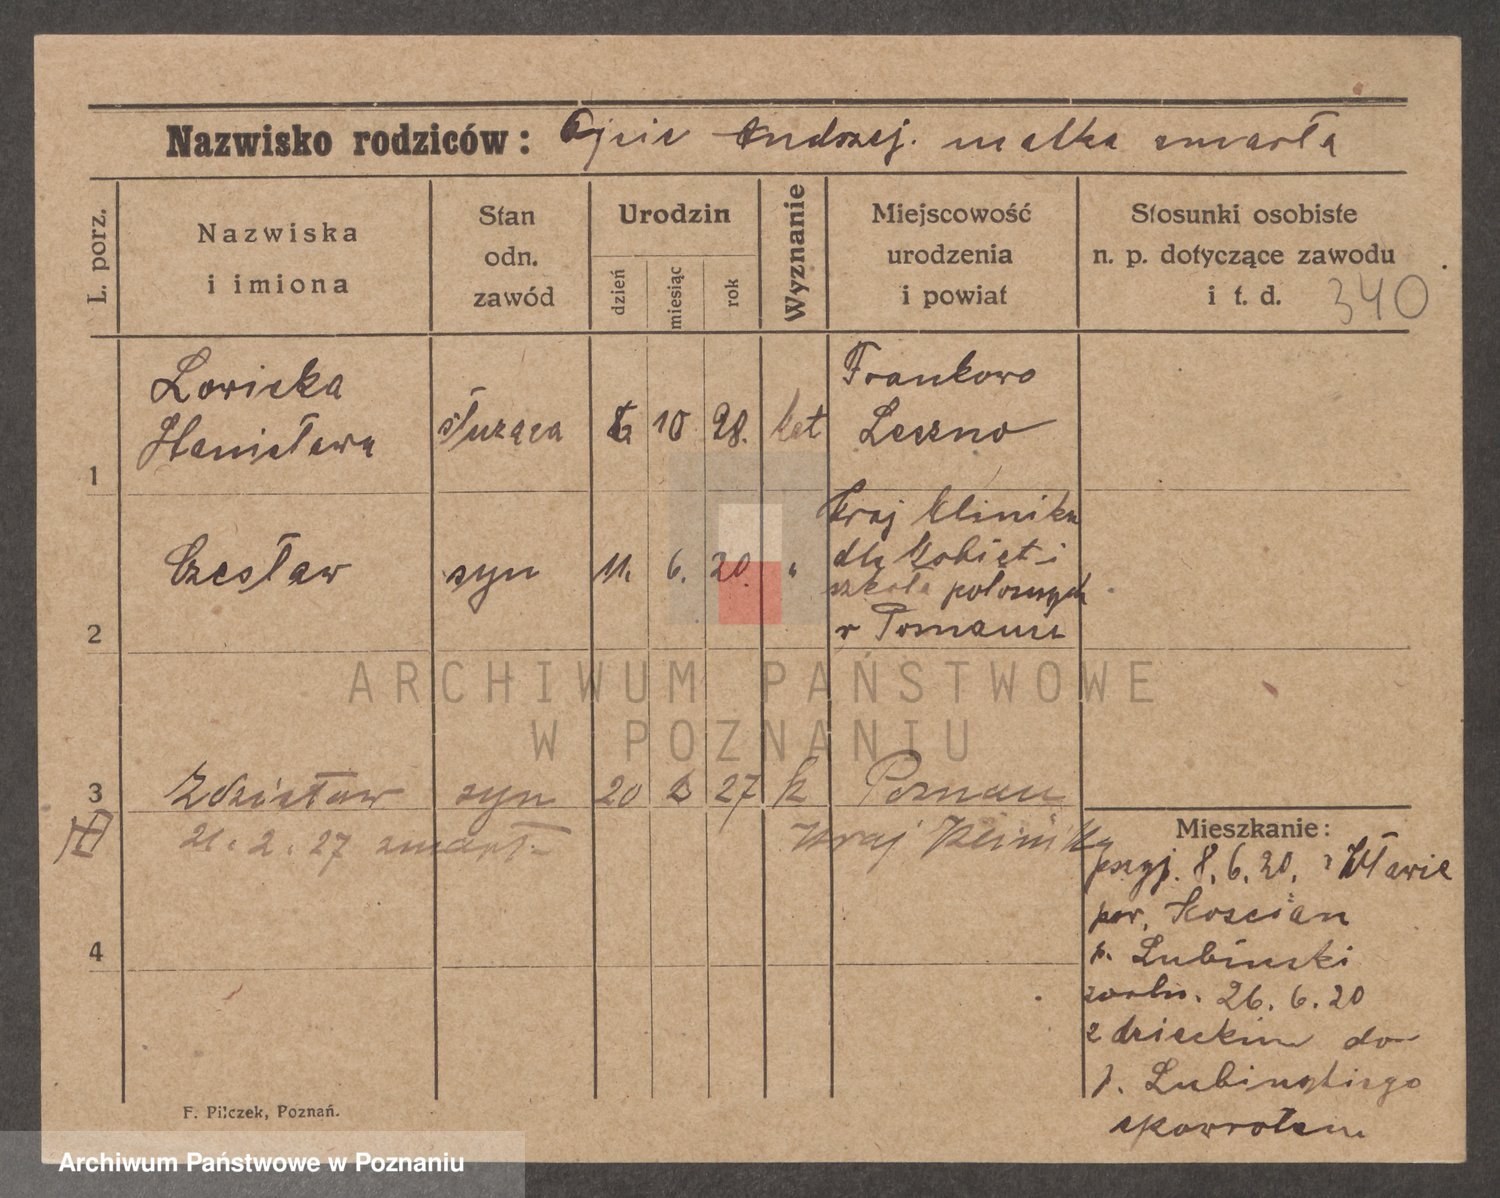 Nazwisko rodziców: Ojciec Andrzej. matka zmarła
L. porz.
Nazwiska i imiona
Stan odn. zawód
Urodzin
dzień
miesiąc
rok
Wyznanie
Miejscowość urodzenia i powiat
Stosunki osobiste n. p. dotyczące zawodu i t. d.
340
1
Lowicka
Stanisława
służąca
10
98.
kat
Frankowo
Leszno
2
Czesław
syn
11.
6.
20.
"
Kraj Klinika
dla kobiet i
szkoła położnych
w Poznaniu
3
Zdzisław
syn
20
2
27
k
Poznań
21. 2. 27 zmarł
Kraj Klinika
4
Mieszkanie:
przyj. 8. 6. 20.
pow. Kościan
p. Lubiński
zwoln. 26. 6. 20
z dzieckiem do
p. Lubińskiego
spowrotem
F. Pilczek, Poznań.
ARCHIWUM PAŃSTWOWE
W POZNANIU
Archiwum Państwowe w Poznaniu